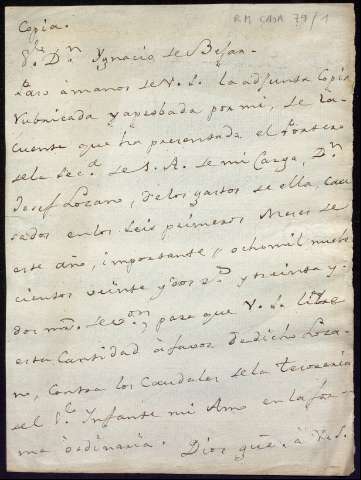 Copia.
RM CAJA 79/1
S.r D.n Ygnacio de Befan.
Paso à manos de V.S. la adjunta Copia
rubricada y aprobada por mi, de la
cuenta que ha presentado el Portero
de la Sec.a de S.A. de mi Cargo, D.n
Josef Lozano, de los gastos de ella, cau
sados en los Seis primeros Meses de
este año, importante, ochomil nuebe
cientos veinte y dos r.s y treinta y
dos m.s de v.on, para que V.S. libre
esta Cantidad à favor de dicho Loza
no, contra los Caudales de la tesoreria
del S.r Infante mi Amo en la for
ma ordinaria. Dios gue. à V.S.